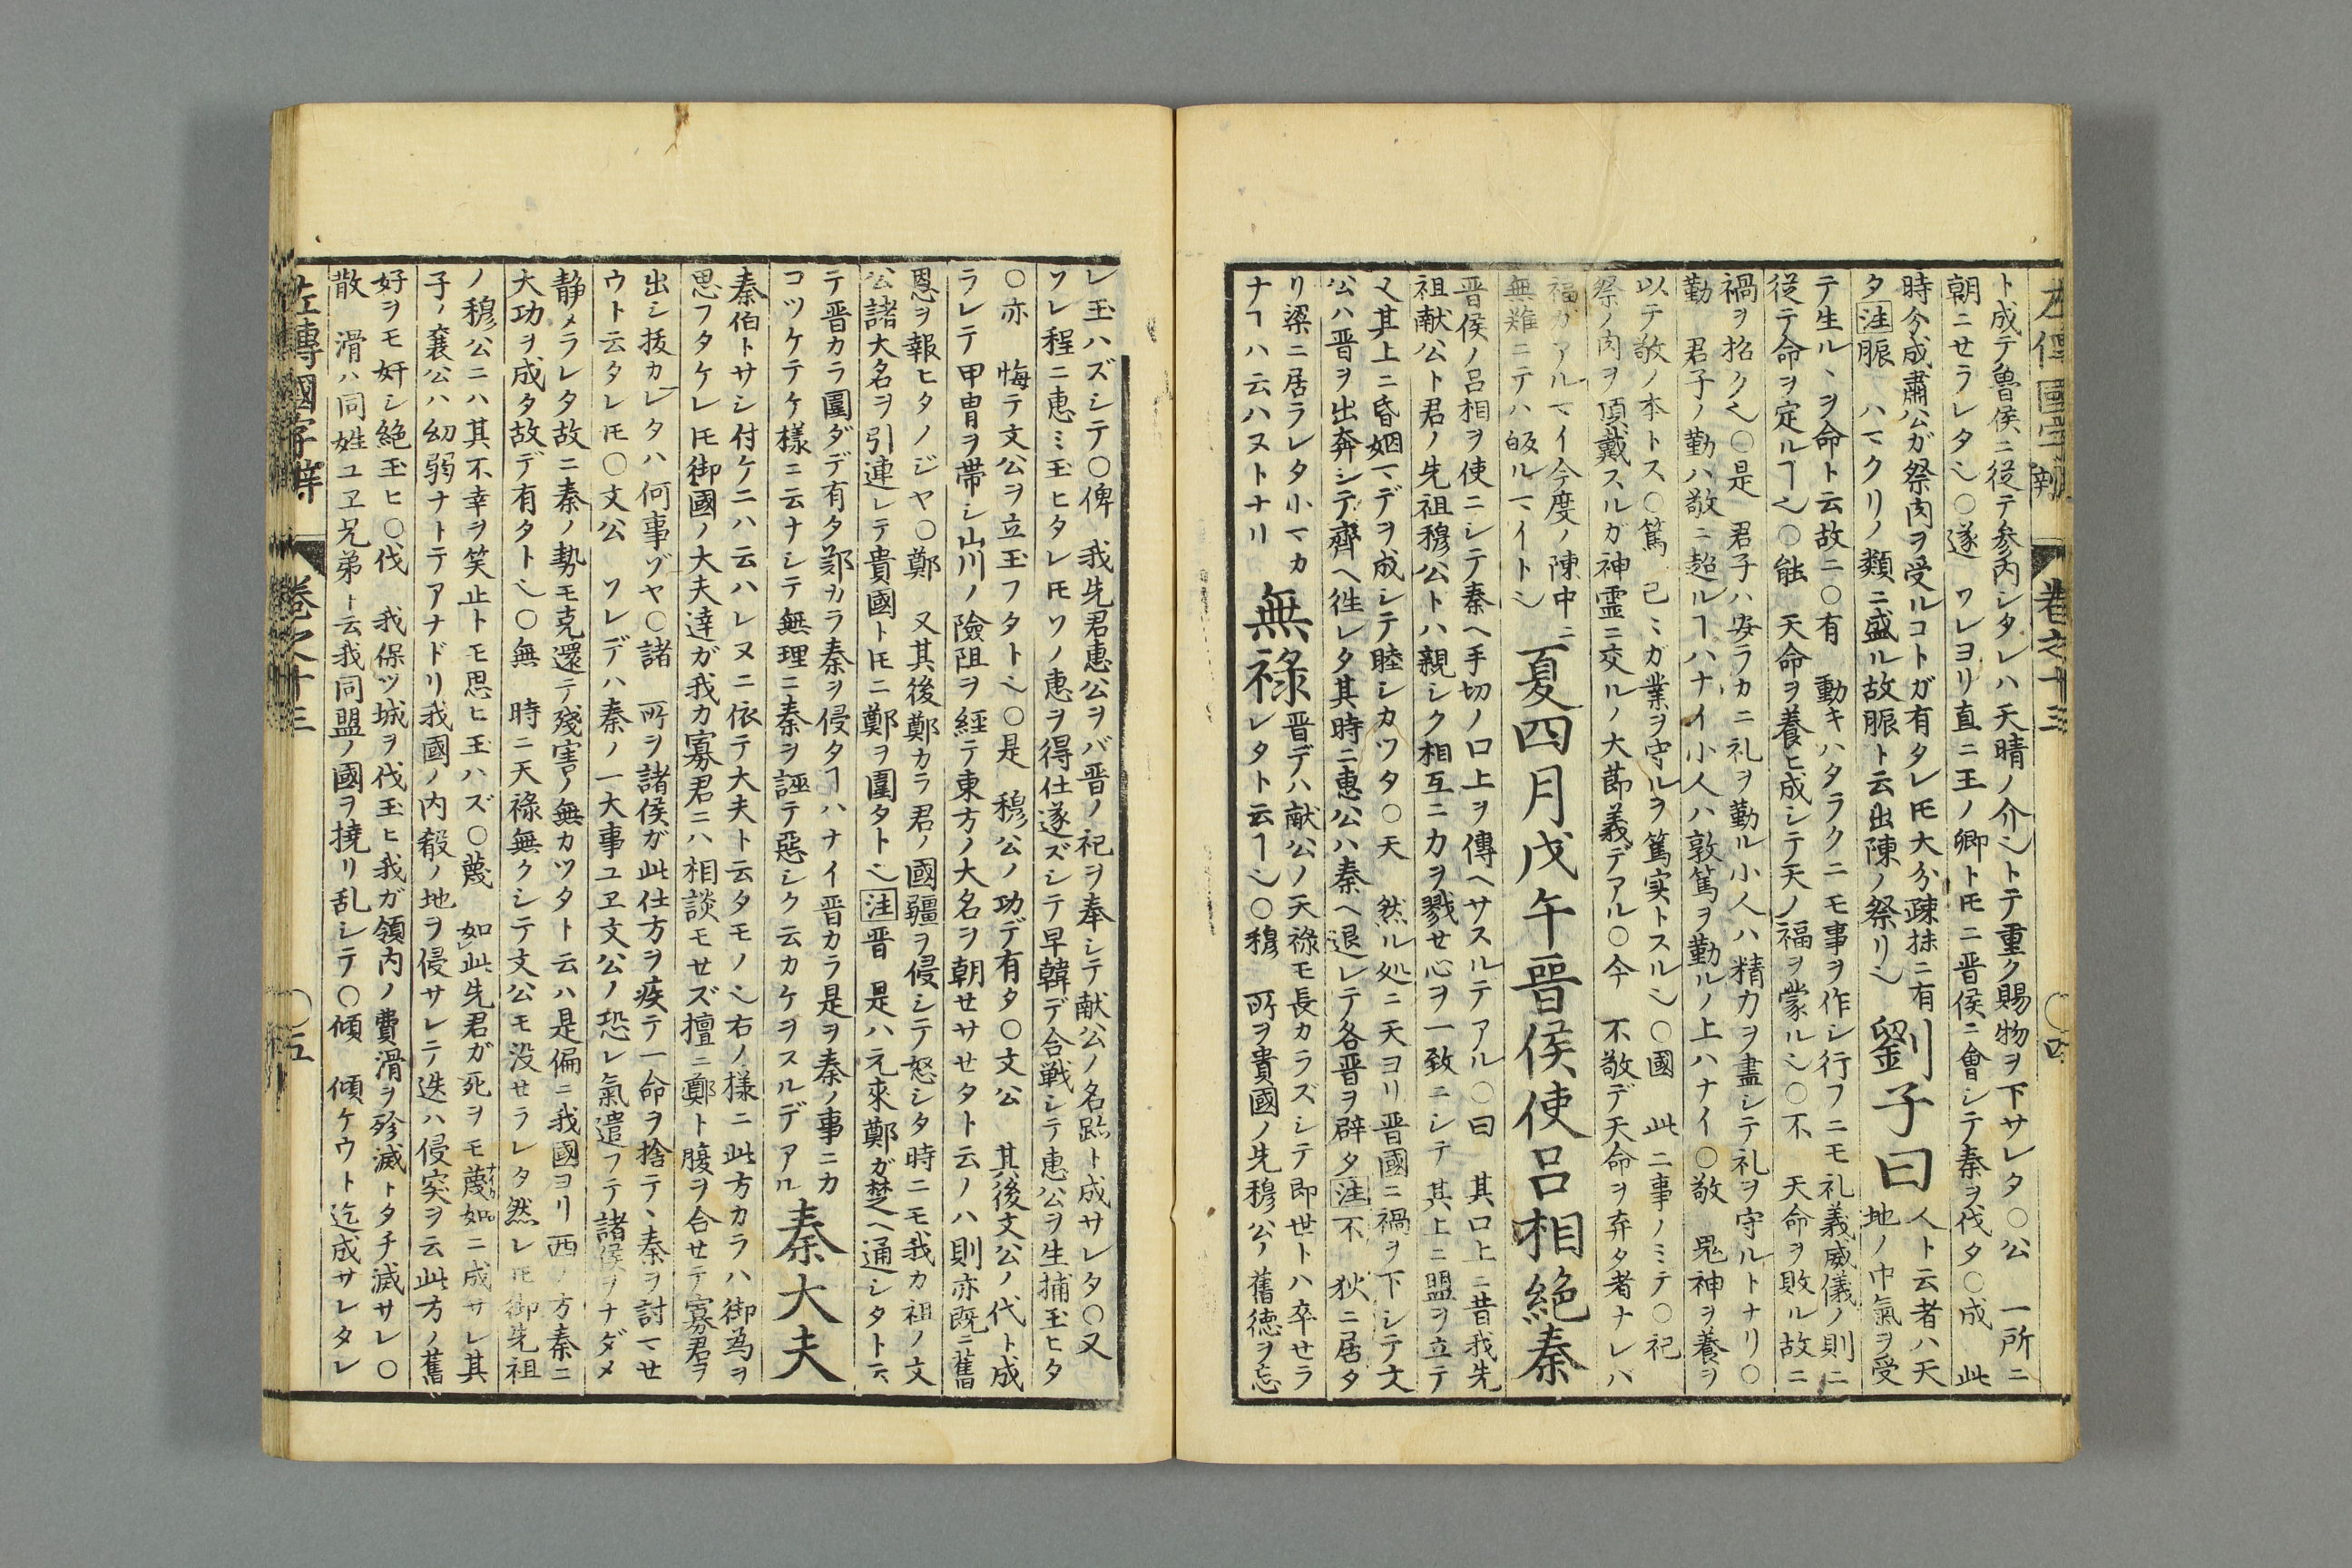 左傳國字辯 巻之十三 〇四
ト成テ魯侯ニ従テ参内シタレハ天晴ノ介シトテ重ク賜物ヲ下サレタ〇公 一所ニ
朝ニせラレタ〆〇遂 ワレヨリ直ニ王ノ卿トモニ晋侯ニ會シテ秦ヲ伐タ〇成 此
時今成肅公ガ祭肉ヲ受ルコトガ有タレ𪜈大分疎抹ニ有
タ注脤 ハマクリノ類ニ盛ル故脤ト云出陳ノ祭リ〆
劉子曰
人ト云者ハ天
地ノ中氣ヲ受
テ生ルヽヲ命ト云故ニ〇有 動キハタラクニモ事ヲ作シ行フニモ礼義威儀ノ則ニ
従テ命ヲ定ルヿ〆〇能 天命ヲ養ヒ成シテ天ノ福ヲ蒙ル〆〇不 天命ヲ敗ル故ニ
禍ヲ招ク〆〇是 君子ハ安ラカニ礼ヲ勤ル小人ハ精力ヲ盡シテ礼ヲ守ルトナリ〇
勤 君子ノ勤ハ敬ニ超ルヿハナイ小人ハ敦篤ヲ勤ルノ上ハナイ〇敬 鬼神ヲ養ヲ
以テ敬ノ本トス〇篤 己ミガ業ヲ守ルヲ篤実トスル〆〇國 此二事ノミテ〇祀
祭ノ肉ヲ頂戴スルガ神霊ニ交ルノ大莭義デアル〇今 不敬デ天命ヲ弃タ者ナレバ
福ガアルマイ今度ノ陳中ニ
無難ニテハ皈ルマイト〆
夏四月戊午晉侯使呂相絶秦
晋侯ノ呂相ヲ使ニシテ秦ヘ手切ノ口上ヲ傳ヘサスルテアル〇曰 其口上ニ昔我先
祖献公ト君ノ先祖穆公トハ親シク相互ニカヲ戮せ心ヲ一致ニシテ 其上ニ盟ヲ立テ
又其上ニ昏姻マデヲ成シテ睦シカツタ〇天 然ル処ニ天ヨリ晋國ニ禍ヲ下シテ文
公ハ晋ヲ出奔シテ齊ヘ徃レタ其時ニ惠公ハ秦ヘ退レテ各晋ヲ辟タ注不 狄ニ居タ
リ梁ニ居ラレタ小マカ
ナヿハ云ハヌトナリ
無禄
晋デハ献公ノ天禄モ長カラズシテ即世トハ卒せラ
レタト云ヿ〆〇穆 所ヲ貴國ノ先穆公ノ舊徳ヲ忘
レ玉ハズシテ〇俾 我先君惠公ヲバ晋ノ祀ヲ奉シテ献公ノ名跡ト成サレタ〇又
ソレ程ニ惠ミ玉ヒタレ𪜈ソノ惠ヲ得仕遂ズシテ早韓デ合戦シテ惠公ヲ生捕玉ヒタ
〇亦 悔テ文公ヲ立玉フタト〆〇是 穆公ノ功デ有タ〇文公 其後文公ノ代ト成
ラレテ甲冑ヲ帯シ山川ノ險阻ヲ經テ東方ノ大名ヲ朝せサせタト云ノハ則亦既ニ舊
恩ヲ報ヒタノジヤ〇鄭 又其後鄭カラ君ノ國疆ヲ侵シテ怒シタ時ニモ我カ祖ノ文
公諸大名ヲ引連レテ貴國ト𪜈ニ鄭ヲ圍タト〆注晋 是ハ元來鄭ガ楚ヘ通シタト云
テ晋カラ圍ダデ有タ鄭カラ秦ヲ侵タヿハナイ晋カラ是ヲ秦ノ事ニカ
コツケテケ様ニ云ナシテ無理ニ秦ヲ誣テ惡シク云カケヲスルデアル
秦大夫
秦伯トサシ付ケニハ云ハレヌニ依テ大夫ト云タモノ〆右ノ様ニ此方カラハ御為ヲ
思フタケレ𪜈御國ノ大夫逹ガ我カ寡君ニハ相談モせズ擅ニ鄭ト腹ヲ合せテ寡君ヲ
出シ抜カレタハ何事ゾヤ〇諸 所ヲ諸侯ガ此仕方ヲ疾テ一命ヲ捨テヽ秦ヲ討マせ
ウト云タレ𪜈〇文公 ソレデハ秦ノ一大事ユヱ文公ノ恐レ氣遣フテ諸侯ヲナダメ
静メラレタ故ニ秦ノ勢モ克還テ殘害ノ無カツタト云ハ是偏ニ我國ヨリ西ノ方秦ニ
大功ヲ成タ故デ有タト〆〇無 時ニ天禄無クシテ文公モ没せラレタ然レ𪜈御先祖
ノ穆公ニハ其不幸ヲ笑止トモ思ヒ玉ハズ〇蔑 如此先君ガ死ヲモ蔑如ニ成サレ其
子ノ襄公ハ幼弱ナトテアナドリ我國ノ内殽ノ地ヲ侵サレテ迭ハ侵突ヲ云此方ノ舊
好ヲモ奸シ絶玉ヒ〇伐 我保ツ城ヲ伐玉ヒ我ガ領内ノ費滑ヲ殄滅トタチ滅サレ〇
散 滑ハ同姓ユヱ兄弟ト云我同盟ノ國ヲ撓リ乱シテ〇傾 傾ケウト迄成サレタレ
左傳國字辯 巻之十三 〇五